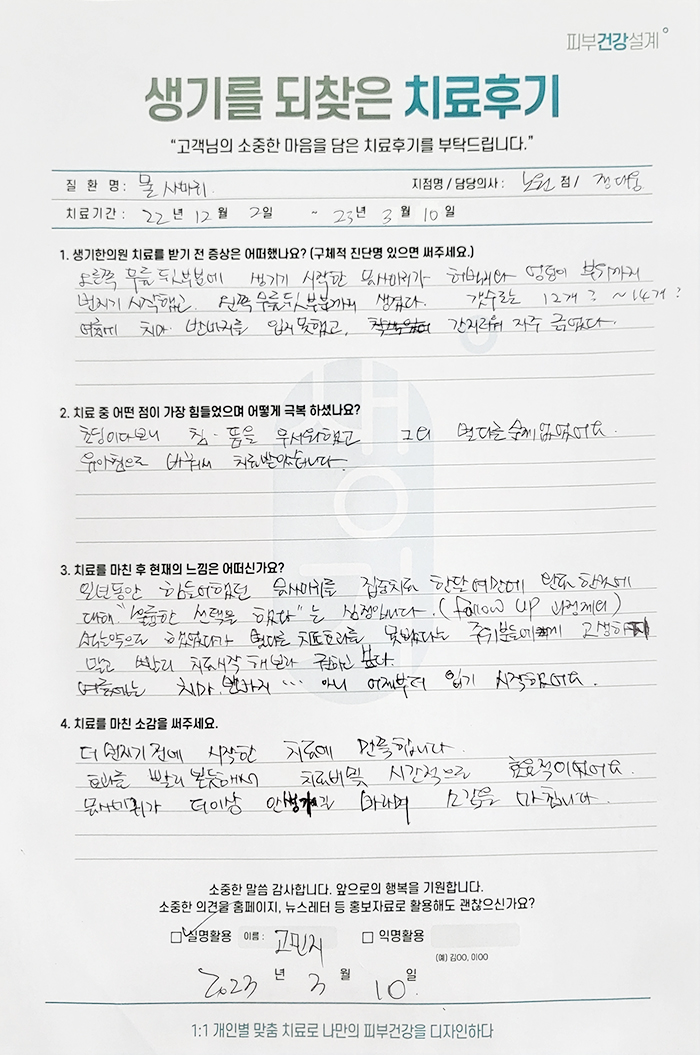 피부건강설계
생기를 되찾은 치료후기
“고객님의 소중한 마음을 담은 치료후기를 부탁드립니다.”
질 환 명 : 물사마귀. 지점명 / 담당의사 : 노원 점 /
치료기간 : 22 년 12 월 2 일 ~ 23 년 3 월 10 일
1. 생기한의원 치료를 받기 전 증상은 어떠했나요? (구체적 진단명 있으면 써주세요.)
오른쪽 무릎 뒷부분에 생기기 시작한 물사마귀가 허벅지와 엉덩이 부위까지
번지기 시작했고. 왼쪽 무릎 뒷부분까지 생겼다. 갯수로는 12개? ~14개?
여름에 치마. 반바지를 입지 못했고, 간지러워 자주 긁었다.
2. 치료 중 어떤 점이 가장 힘들었으며 어떻게 극복 하셨나요?
초딩이다보니 침·뜸을 무서워했고 그외 별다른 문제 없었어요.
유아침으로 바꿔서 치료받았습니다.
3. 치료를 마친 후 현재의 느낌은 어떠신가요?
일년동안 힘들어했던 물사마귀를 집중치료 한달여만에 완료한것에
대해 "훌륭한 선택을 했다"는 심정입니다. (follow up 과정제외)
했었다가 별다른 치료효과를 못봤다는 주위분들에게 고생하지
말고 빨리 치료시작 해보라 권하고 싶다.
여름에는 치마. 반바지 ... 아니 어제부터 입기 시작했어요.
4. 치료를 마친 소감을 써주세요.
더 번지기 전에 시작한 치료에 만족합니다.
효과를 빨리 봤으며 치료비및 시간적으로 효율적이었어요.
물사마귀가 더이상 안생기길 바라며 소감을 마칩니다.
소중한 말씀 감사합니다. 앞으로의 행복을 기원합니다.
소중한 의견을 홈페이지, 뉴스레터 등 홍보자료로 활용해도 괜찮으신가요?
실명활용 이름 : 고민지 익명활용
(예) 김OO, 이OO
2023 년 3 월 10 일
1:1 개인별 맞춤 치료로 나만의 피부건강을 디자인하다